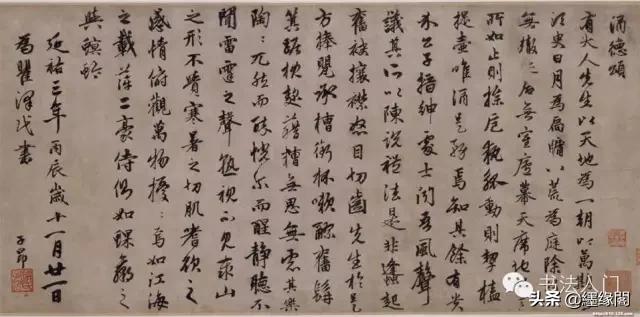 酒德頌
有大人先生以天地為一朝以萬期
須臾日月為扃牖八荒為庭除
無轍跡居無室廬幕天席地
所如止則操卮執觚動則挈榼
提壺唯酒是務焉知其餘有貴
介公子搢紳處士聞吾風聲
議其所以陳說禮法是非鋒起
奮袂攘襟怒目切齒先生於是
方捧甖承槽銜杯漱醪奮髯
箕踞枕麴藉糟無思無慮其樂
陶〻兀然而醉恍尔而醒靜聽不
聞雷霆之聲孰視不見泰山
之形不覺寒暑之切肌嗜欲之
感情俯觀萬物擾〻焉如江海
之載萍二豪侍側如蜾蠃之
與螟蛉
延祐三年丙辰歲十一月廿一日
為瞿澤民書
子昂
书法入门
头条@繧缘阁